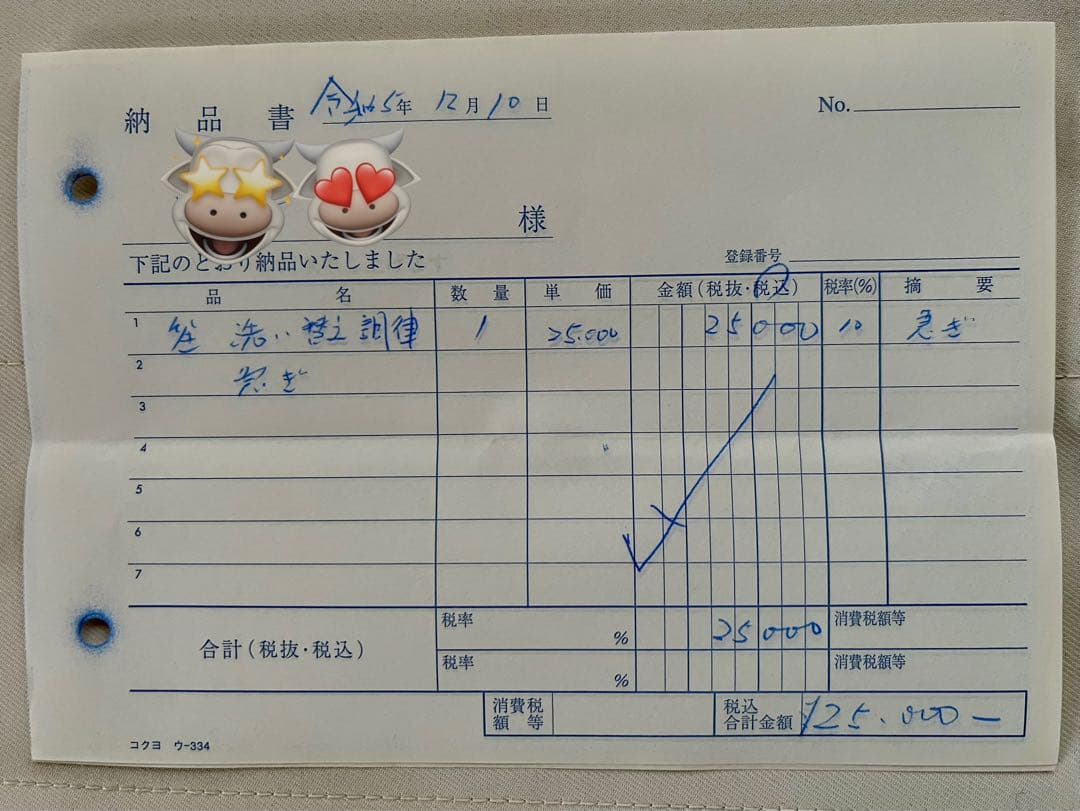 納品書 令和5年 12月10日 No.
様
下記のとおり納品いたしました 登録番号
品名 数量 単価 金額(税抜・税込) 税率(%) 摘要
1 笙 洗い替え調律 1 25.000 25000 10 急ぎ
2 急ぎ
3
4 〃
5
6
7
合計(税抜・税込) 税率 % 25000 消費税額等
税率 % 消費税額等
消費税額等 税込合計金額 ¥25.000-
コクヨ ウ-334